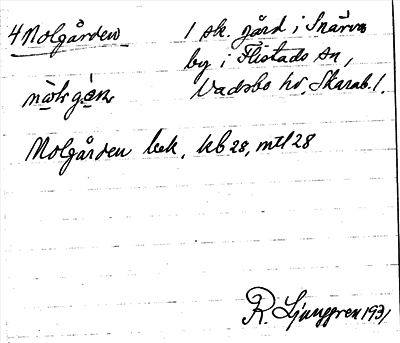 4 Nolgården 1 sk. gård i Snärva
by i Flistads sn,
Vadsbo hd, Skarab. l.
Nolgården bek. kb 28, mtl 28
R. Ljunggren 1931